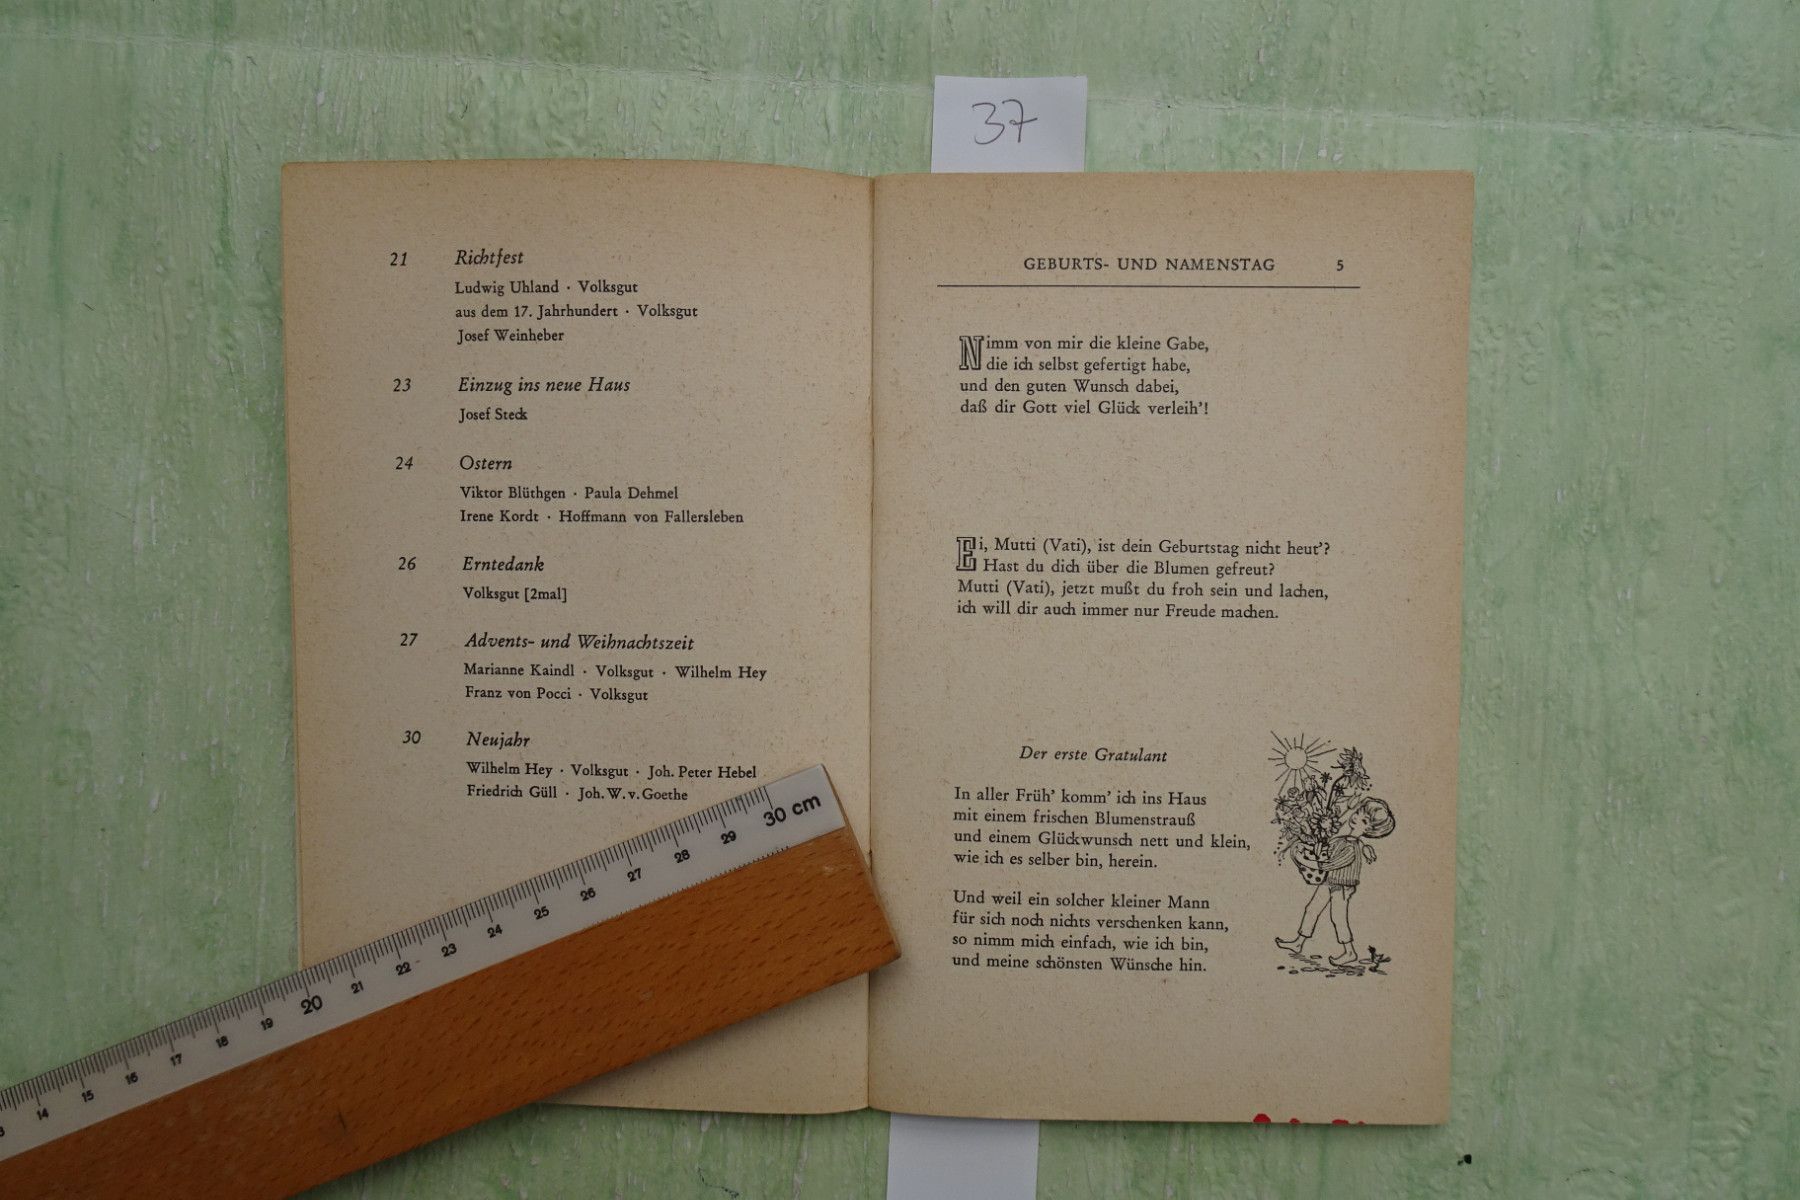 37
21 Richtfest
Ludwig Uhland · Volksgut
aus dem 17. Jahrhundert · Volksgut
Josef Weinheber
23 Einzug ins neue Haus
Josef Steck
24 Ostern
Viktor Blüthgen · Paula Dehmel
Irene Kordt · Hoffmann von Fallersleben
26 Erntedank
Volksgut [2mal]
27 Advents- und Weihnachtszeit
Marianne Kaindl · Volksgut · Wilhelm Hey
Franz von Pocci · Volksgut
30 Neujahr
Wilhelm Hey · Volksgut · Joh. Peter Hebel
Friedrich Güll · Joh. W. v. Goethe
GEBURTS- UND NAMENSTAG 5
Nimm von mir die kleine Gabe,
die ich selbst gefertigt habe,
und den guten Wunsch dabei,
daß dir Gott viel Glück verleih'!
Ei, Mutti (Vati), ist dein Geburtstag nicht heut'?
Hast du dich über die Blumen gefreut?
Mutti (Vati), jetzt mußt du froh sein und lachen,
ich will dir auch immer nur Freude machen.
Der erste Gratulant
In aller Früh' komm' ich ins Haus
mit einem frischen Blumenstrauß
und einem Glückwunsch nett und klein,
wie ich es selber bin, herein.
Und weil ein solcher kleiner Mann
für sich noch nichts verschenken kann,
so nimm mich einfach, wie ich bin,
und meine schönsten Wünsche hin.
14 15 16 17 18 19 20 21 22 23 24 25 26 27 28 29 30 cm